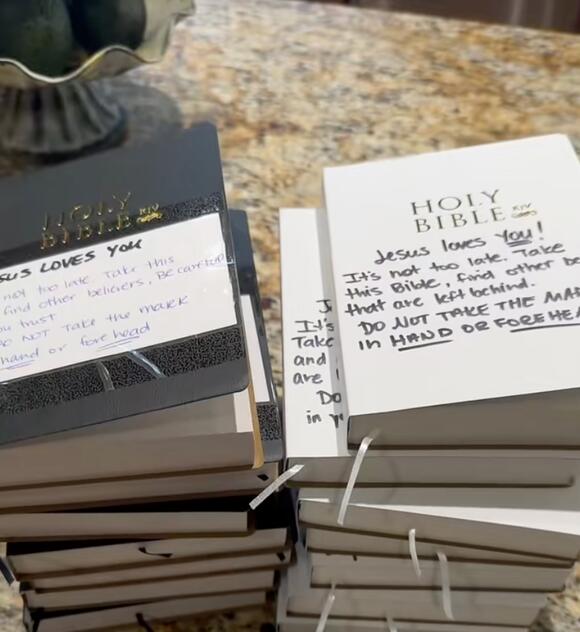 HOLY
BIBLE KJV
SUS LOVES YOU
not too late. Take this
find other believers, Be careful
ou trust
DO NOT Take the mark
hand or forehead
HOLY
BIBLE KJV
Jesus loves YOU!
It's not too late. Take
this Bible, find other be
that are left behind.
DO NOT TAKE THE MAR
in HAND OR FOREHEA
J
It's
Take
and
are
Do
in